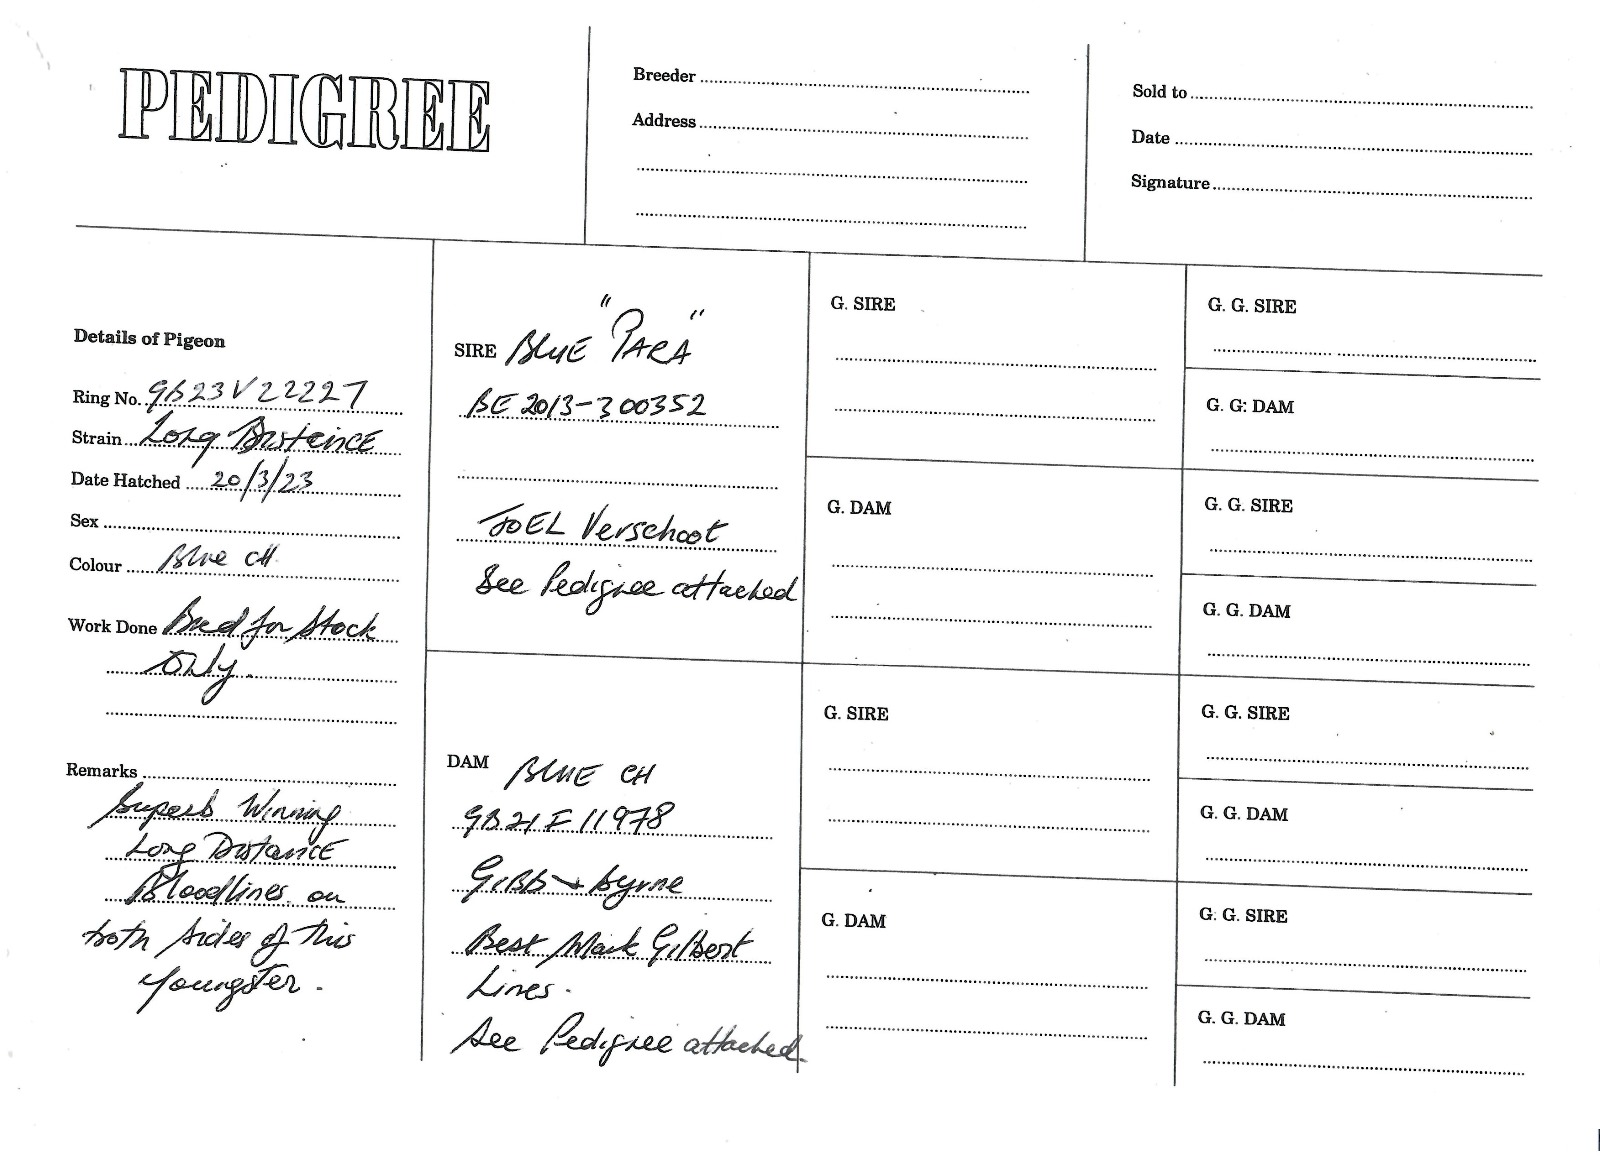 PEDIGREE
Breeder
Address
Sold to
Date
Signature
Details of Pigeon
Ring No. GB23V22227
Strain Long Distance
Date Hatched 20/3/23
Sex
Colour Blue CH
Work Done Bred for Stock
Only.
Remarks
Superb Winning
Long Distance
Bloodlines on
both sides of this
Youngster.
SIRE BLUE "PARA"
BE 2013-300352
JOEL Verschoot
See Pedigree attached
DAM BLUE CH
GB21F11978
GIBB & Byrne
Best Mark Gilbert
Lines.
See Pedigree attached.
G. SIRE
G. DAM
G. SIRE
G. DAM
G. G. SIRE
G. G: DAM
G. G. SIRE
G. G. DAM
G. G. SIRE
G. G. DAM
G. G. SIRE
G. G. DAM